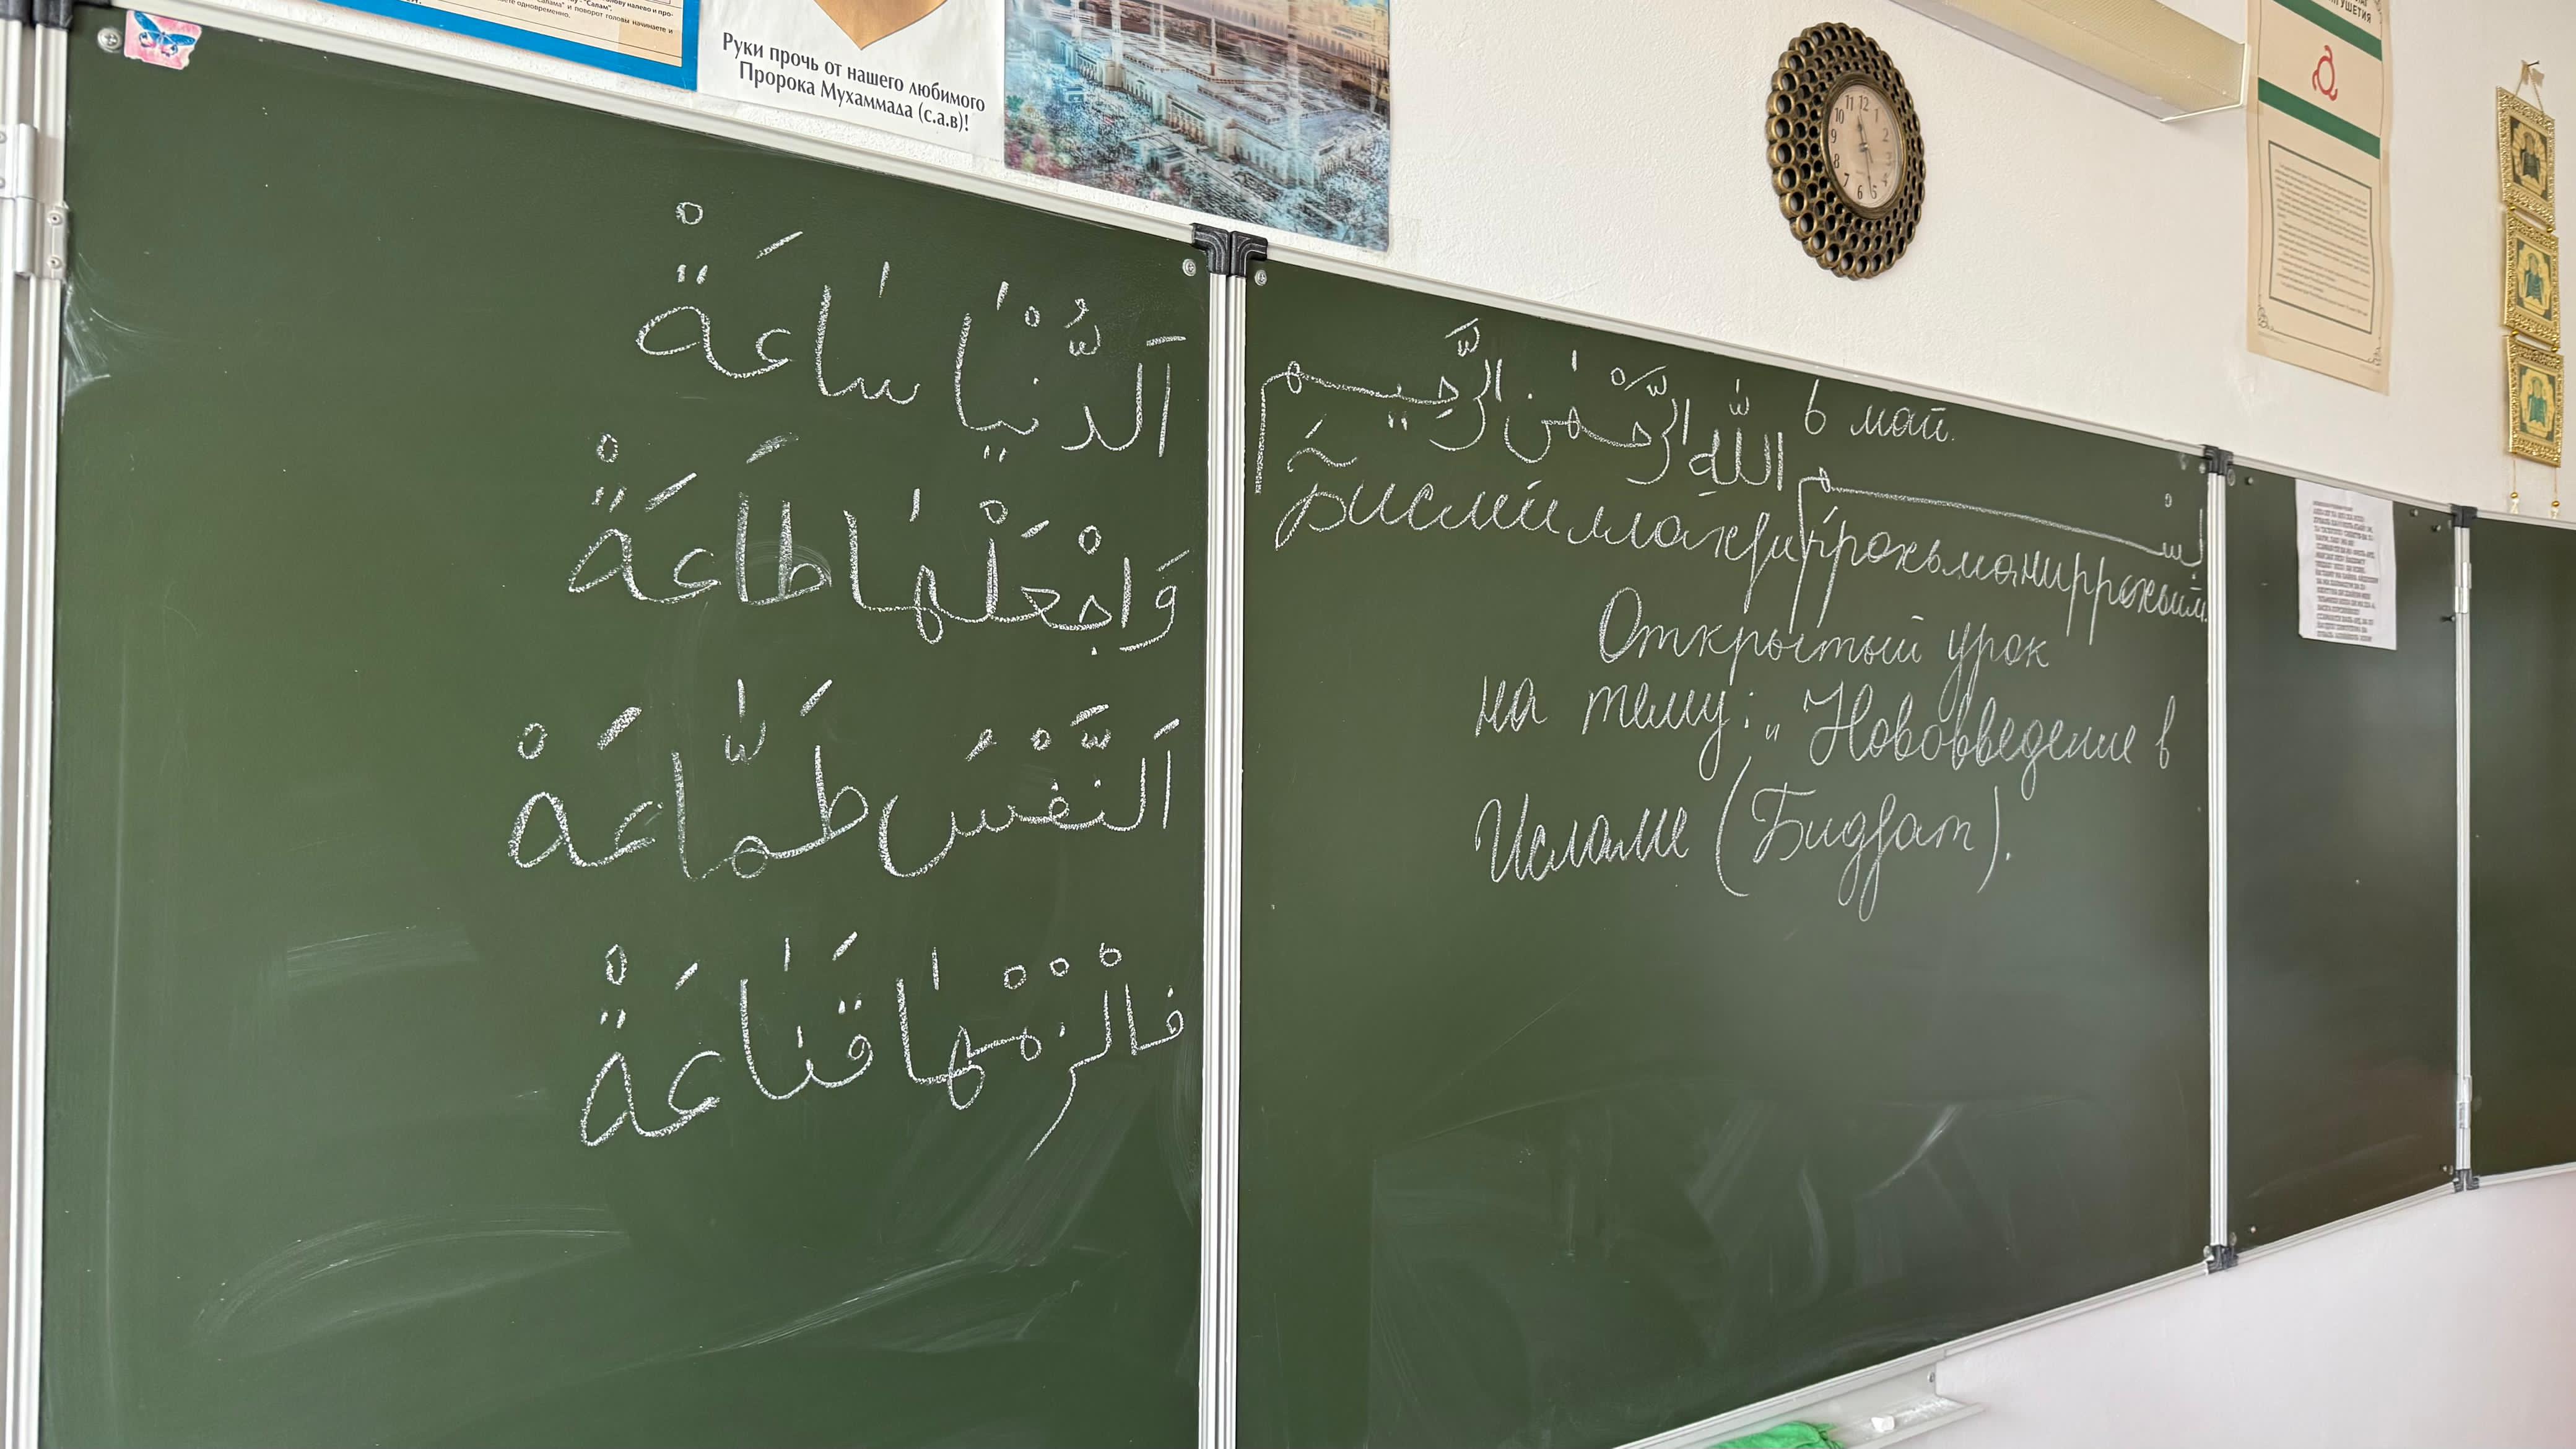 Руки прочь от нашего любимого
Пророка Мухаммада (с.а.в)!
اَلدُّنْيَا سَاعَةْ
وَاجْعَلْهَا طَاعَةْ
اَلنَّفْسُ طَمَّاعَةْ
فَالْزِمْهَا قَنَاعَةْ
6 май.
بسْم اللّٰهِ الرَّحْمٰن الرَّحِيم
Бисмиллахиррахьманиррахьим.
Открытый урок
на тему: „Нововведение в
Исламе (БидӀат).
УШЕТИЯ
11 12 1
10 2
9 3
8 4
7 6 5